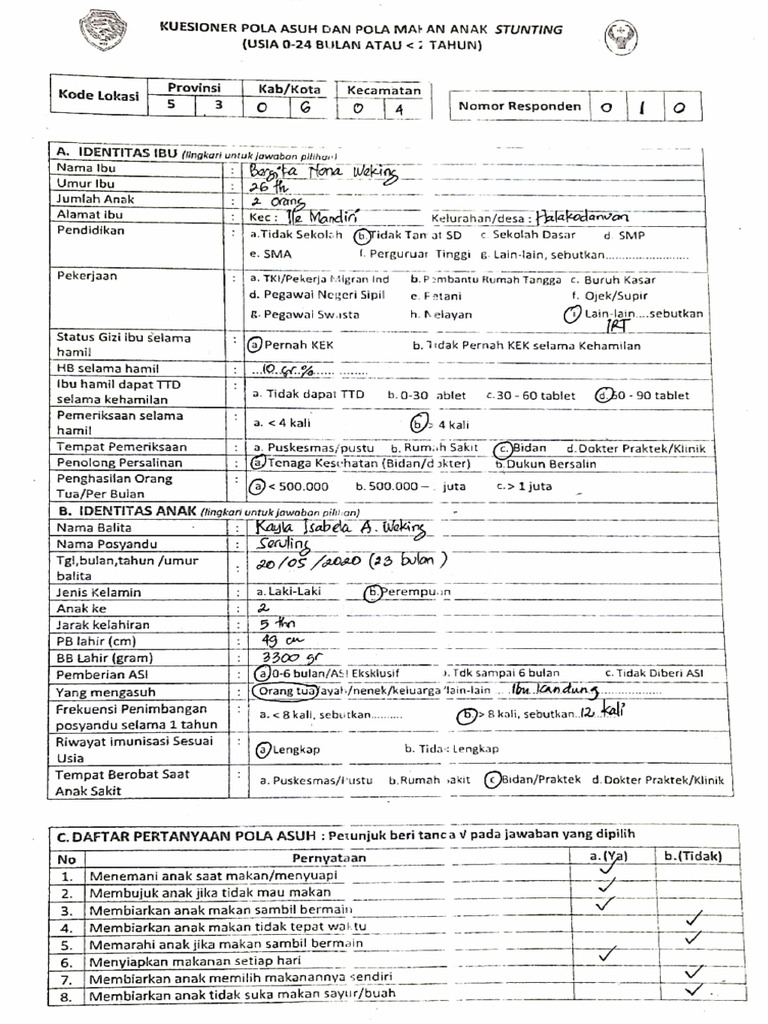 KUESIONER POLA ASUH DAN POLA MAKAN ANAK STUNTING
(USIA 0-24 BULAN ATAU < 2 TAHUN)
Kode Lokasi Provinsi Kab/Kota Kecamatan
5 3 0 6 0 4
Nomor Responden 0 1 0
A. IDENTITAS IBU (lingkari untuk jawaban pilihan)
Nama Ibu : Bergita Nona Weking
Umur Ibu : 26 th
Jumlah Anak : 2 orang
Alamat ibu : Kec : Ile Mandiri Kelurahan/desa : Halakodanuan
Pendidikan : a.Tidak Sekolah b.Tidak Tamat SD c. Sekolah Dasar d. SMP
e. SMA f. Perguruan Tinggi g. Lain-lain, sebutkan........................
Pekerjaan : a. TKI/Pekerja Migran Ind b. Pembantu Rumah Tangga c. Buruh Kasar
d. Pegawai Negeri Sipil e. Petani f. Ojek/Supir
g. Pegawai Swasta h. Nelayan i Lain-lain....sebutkan
IRT
Status Gizi ibu selama hamil : a Pernah KEK b. Tidak Pernah KEK selama Kehamilan
HB selama hamil : ...10 gr %...............
Ibu hamil dapat TTD selama kehamilan : a. Tidak dapat TTD b. 0-30 tablet c.30 - 60 tablet d.60 - 90 tablet
Pemeriksaan selama hamil : a. < 4 kali b.> 4 kali
Tempat Pemeriksaan : a. Puskesmas/pustu b. Rumah Sakit c. Bidan d. Dokter Praktek/Klinik
Penolong Persalinan : a Tenaga Kesehatan (Bidan/dokter) b. Dukun Bersalin
Penghasilan Orang Tua/Per Bulan : a < 500.000 b. 500.000 – juta c. > 1 juta
B. IDENTITAS ANAK (lingkari untuk jawaban pilihan)
Nama Balita : Kayla Isabela A. Weking
Nama Posyandu : Seruling
Tgl,bulan,tahun /umur balita : 20/05/2020 (23 bulan)
Jenis Kelamin : a. Laki-Laki b.Perempuan
Anak ke : 2
Jarak kelahiran : 5 thn
PB lahir (cm) : 49 cm
BB Lahir (gram) : 3300 gr
Pemberian ASI : a 0-6 bulan/ASI Eksklusif b. Tdk sampai 6 bulan c. Tidak Diberi ASI
Yang mengasuh : Orang tua/ayah/nenek/keluarga lain-lain ....Ibu kandung...............
Frekuensi Penimbangan posyandu selama 1 tahun : a. < 8 kali, sebutkan.......... b.> 8 kali, sebutkan..12 kali
Riwayat imunisasi Sesuai Usia : a Lengkap b. Tidak Lengkap
Tempat Berobat Saat Anak Sakit : a. Puskesmas/Pustu b.Rumah sakit c Bidan/Praktek d. Dokter Praktek/Klinik
C. DAFTAR PERTANYAAN POLA ASUH : Petunjuk beri tanda √ pada jawaban yang dipilih
No Pernyataan a.(Ya) b.(Tidak)
1. Menemani anak saat makan/menyuapi ✓
2. Membujuk anak jika tidak mau makan ✓
3. Membiarkan anak makan sambil bermain ✓
4. Membiarkan anak makan tidak tepat waktu ✓
5. Memarahi anak jika makan sambil bermain ✓
6. Menyiapkan makanan setiap hari ✓
7. Membiarkan anak memilih makanannya sendiri ✓
8. Membiarkan anak tidak suka makan sayur/buah ✓